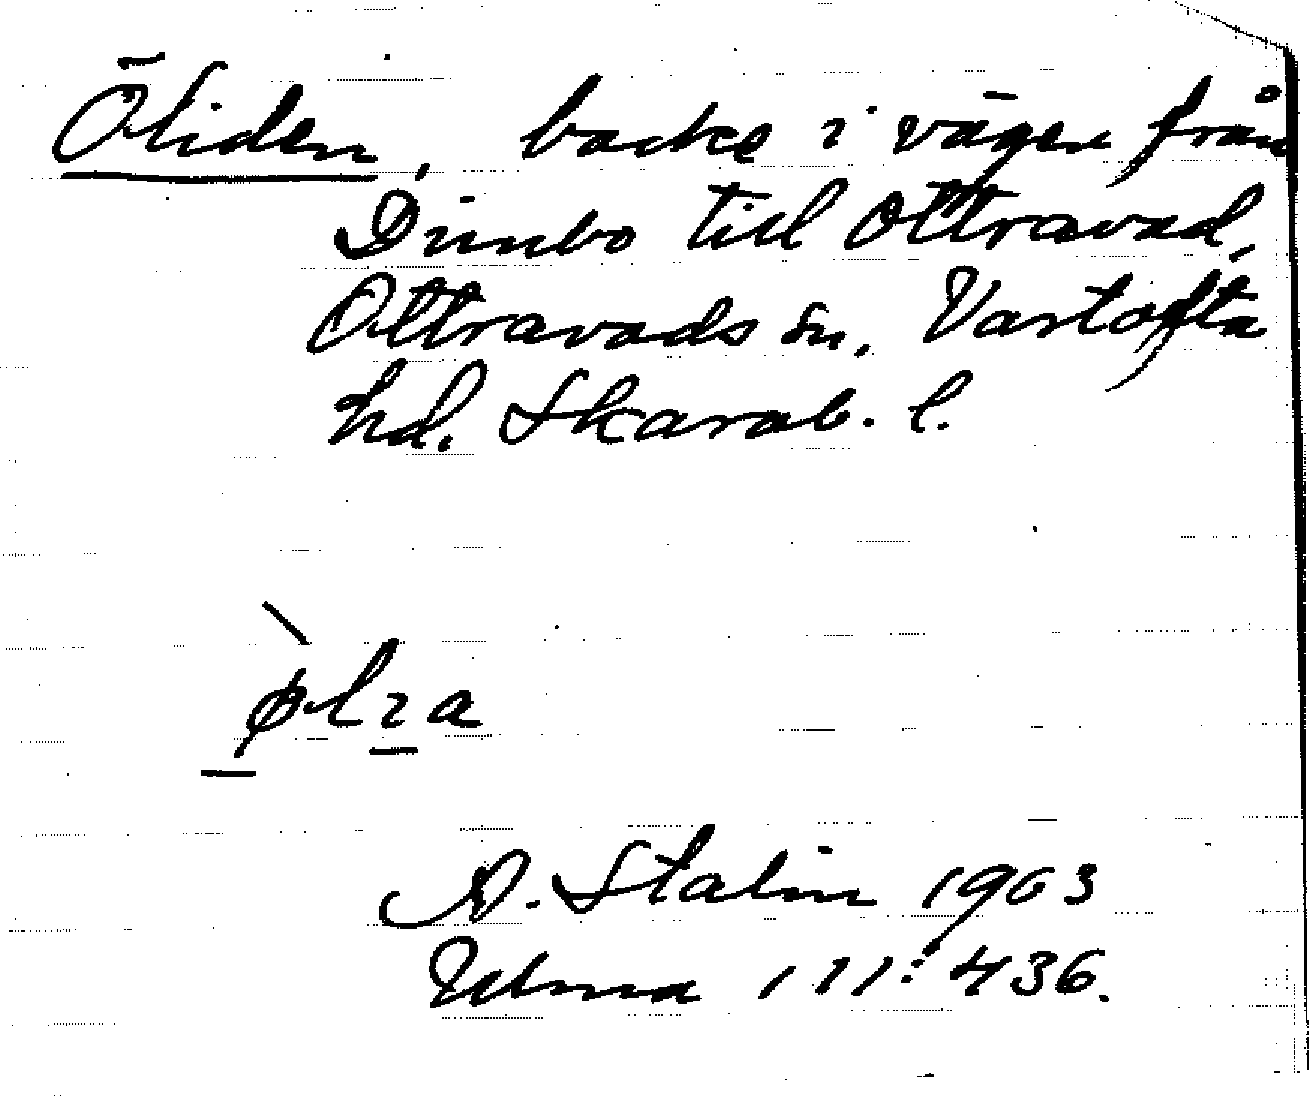 Öliden, backe i vägen från
Dimbo till Ottravad,
Ottravads sn. Vartofta
hd. Skarab. l.
A. Stalin 1903
Ulma 111:436.